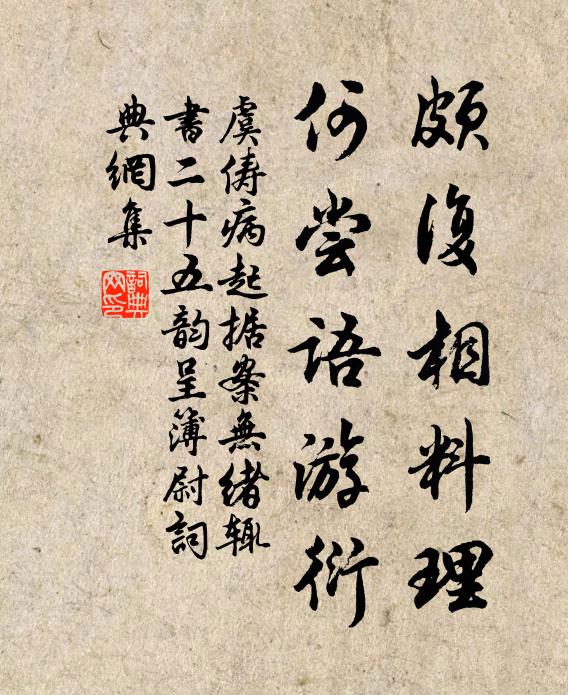 頗復相料理
何嘗語游衍
虞儔病起据案無緒輒
書二十五韵呈簿尉詞
典網集
詞典网印